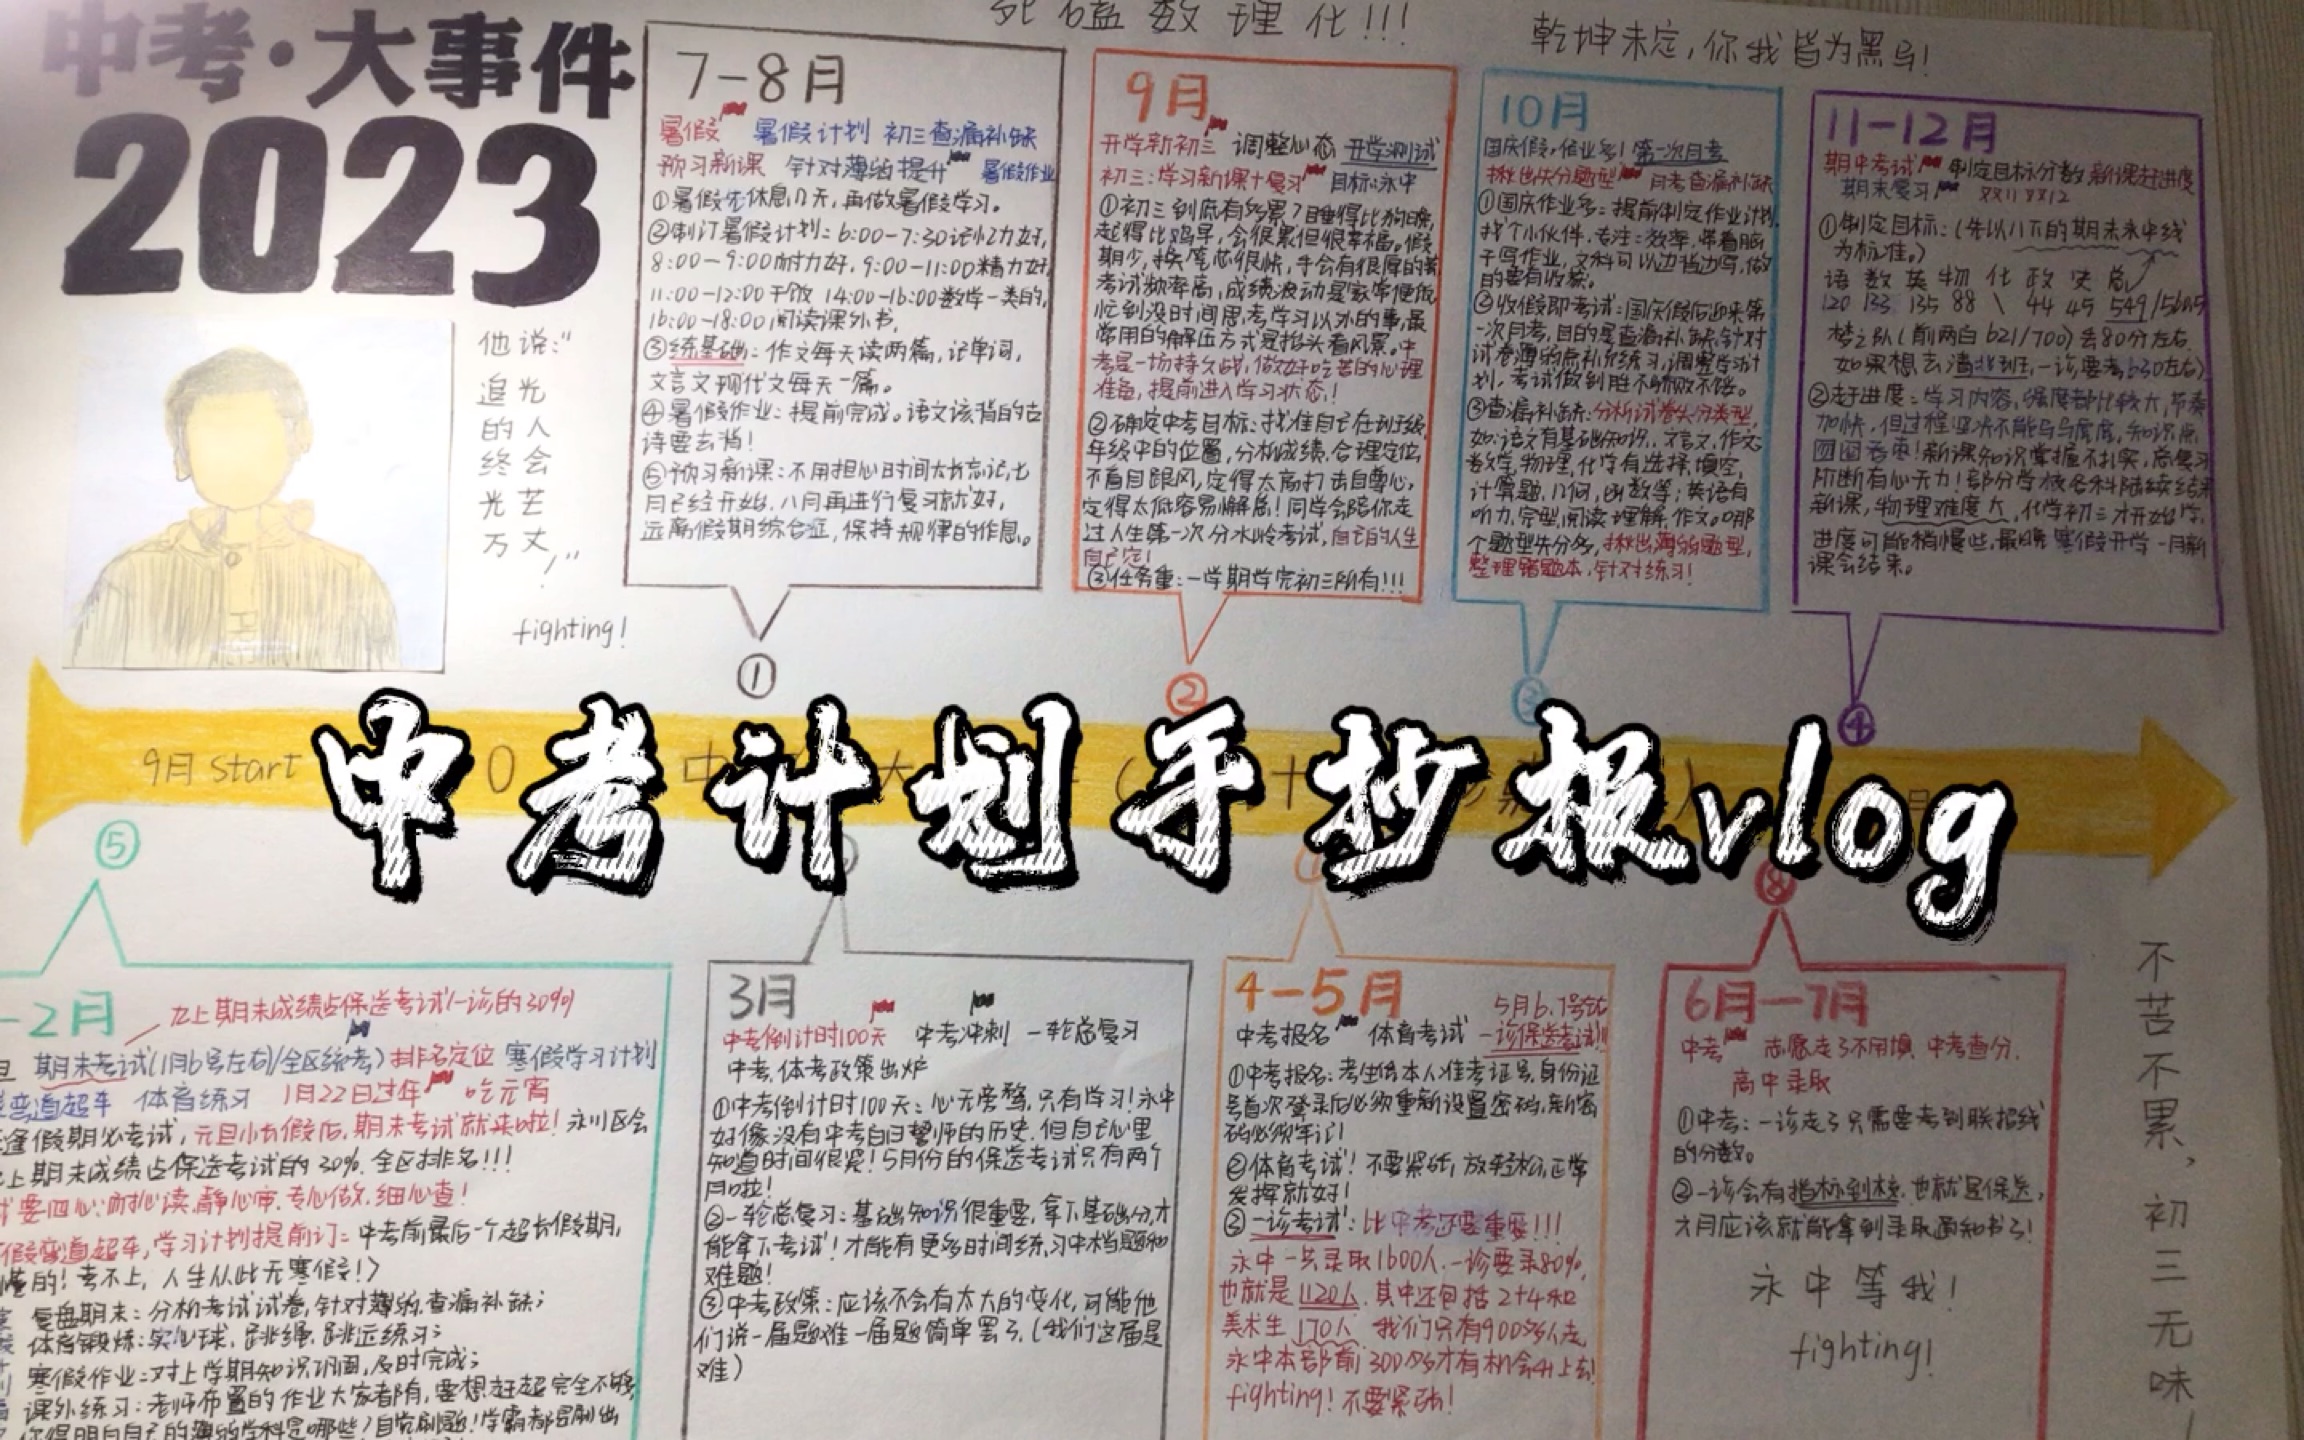 死磕数理化!!!
乾坤未定,你我皆为黑马!
中考·大事件
2023
他说:"
追光
的人
终会
光芒
万丈!"
fighting!
7-8月
暑假 暑假计划 初三查漏补缺
预习新课 针对薄弱提升 暑假作业
①暑假先休息几天,再做暑假学习。
②制订暑假计划:6:00-7:30记忆力好,
8:00-9:00耐力好,9:00-11:00精力好,
11:00-12:00干饭 14:00-16:00数学一类的,
16:00-18:00阅读课外书,
③练基础:作文每天读两篇,记单词,
文言文现代文每天一篇。
④暑假作业:提前完成。语文该背的古
诗要去背!
⑤预习新课:不用担心时间太长忘记,七
月已经开始,八月再进行复习就好,
远离假期综合症,保持规律的作息。
①
9月
开学新初三 调整心态 开学测试
初三:学习新课+复习 目标:永中
①初三到底有多累?睡得比狗晚,
起得比鸡早,会很累但很幸福。假
期少,换笔芯很快,手会有很厚的茧
考试频率高,成绩波动是家常便饭
忙到没时间思考学习以外的事,最
常用的解压方式是抬头看风景。中
考是一场持久战,做好吃苦的心理
准备,提前进入学习状态!
②确定中考目标:找准自己在到班级,
年级中的位置,分析成绩,合理定位,
不盲目跟风,定得太高打击自尊心,
定得太低容易懈怠!同学会陪你走
过人生第一次分水岭考试,自己的人生
自己定!
③任务重:一学期学完初三所有!!!
②
10月
国庆假,作业多!第一次月考
揪出失分题型 月考查漏补缺
①国庆作业多:提前制定作业计划,
找个小伙伴,专注:效率,带着脑
子写作业,文科可以边背边写,做
的要有收获。
②收假即考试:国庆假后迎来第
一次月考,目的是查漏补缺,针对
试卷薄弱点补充练习,调整学习计
划,考试做到胜不骄败不馁。
③查漏补缺:分析试卷失分类型,
如:语文有基础知识,文言文,作文;
数学,物理,化学有选择,填空,
计算题,几何,函数等;英语有
听力,完型,阅读理解,作文。哪
个题型失分多,揪出薄弱题型,
整理错题本,针对练习!
③
11-12月
期中考试 制定目标分数 新课赶进度
期末复习
①制定目标:(先以八下的期末永中线
为标准。)
语 数 英 物 化 政 史 总
120 133 135 88 \ 44 45 549
梦之队(前两百621/700)丢80分左右.
如果想去清北班,一诊要考630左右)
②赶进度:学习内容,强度都比较大,节奏
加快,但过程坚决不能马马虎虎,知识点
囫囵吞枣!新课知识掌握不扎实,总复习
阶断有心无力!部分学校各科陆续结束
新课,物理难度大,化学初三才开始学,
进度可能稍慢些,最晚寒假开学一月新
课会结束。
④
9月 start
中考计划手抄报vlog
⑤
-2月
九上期末成绩占保送考试(一诊的30%)
期末考试(1月6号左右)/全区统考) 排名定位 寒假学习计划
弯道超车 体育练习 1月22日过年 吃元宵
逢假期必考试,元旦小长假后,期末考试就来啦!永川区会
上期末成绩占保送考试的30%.全区排名!!!
要四心:耐心读,静心审,专心做,细心查!
假弯道超车,学习计划提前订:中考前最后一个超长假期,
懂的!考不上,人生从此无寒假!)
复盘期末:分析考试试卷,针对薄弱,查漏补缺;
体育锻炼:实心球,跳绳,跳远练习;
寒假作业:对上学期知识巩固,及时完成;
课外练习:老师布置的作业大家都有,要想赶超完全不够,
你得明白自己的薄弱学科是哪些?自觉刷题!学霸都是刷出
3月
中考倒计时100天 中考冲刺 一轮总复习
中考,体考政策出炉
①中考倒计时100天:心无旁骛,只有学习!永中
好像没有中考百日誓师的历史,但自己心里
知道时间很紧!5月份的保送考试只有两个
月啦!
②一轮总复习:基础知识很重要,拿下基础分,才
能拿下考试!才能有更多时间练习中档题和
难题!
③中考政策:应该不会有太大的变化,可能他
们说一届题难一届题简单罢了,(我们这届是
难)
4-5月
5月6.7号
中考报名 体育考试 一诊保送考试!!
①中考报名:考生给本人准考证号,身份证
号首次登录后必须重新设置密码,新密
码必须牢记!
②体育考试!不要紧张,放轻松,正常
发挥就好!
③一诊考试:比中考还要重要!!!
永中一共录取1600人.一诊要录80%,
也就是1120人.其中还包括2+4和
美术生170人 我们只有900多人走,
永中本部前300多才有机会升上去!
fighting!不要紧张!
⑧
6月-7月
中考 志愿走了不用慎 中考查分.
高中录取
①中考:一诊走了只需要考到联招线
的分数。
②一诊会有指标到校,也就是保送,
六月应该就能拿到录取通知书了!
永中等我!
fighting!
不苦不累,初三无味!